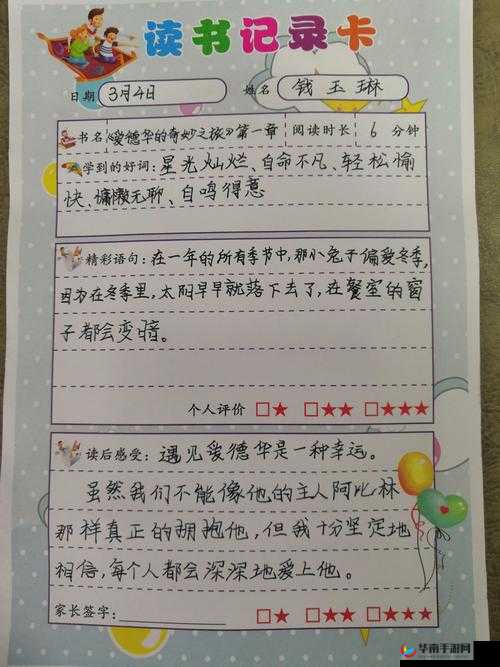 读书记录卡
日期 3月4日 姓名 钱玉琳
书名《爱德华的奇妙之旅》第一章 阅读时长 6 分钟
学到的好词：星光灿烂、自命不凡、轻松愉
快、慵懒无聊、自鸣得意
精彩语句：在一年的所有季节中，那小兔子偏爱冬季，
因为在冬季里，太阳早早就落下去了，在餐室的窗
子都会变暗。
个人评价 □★ □★★ □★★★
读后感受：遇见爱德华是一种幸运。
虽然我们不能像他的主人阿比林
那样真正的拥抱他，但我十分坚定地
相信，每个人都会深深地爱上他。
家长签字： □★ □★★ □★★★
华南手游网